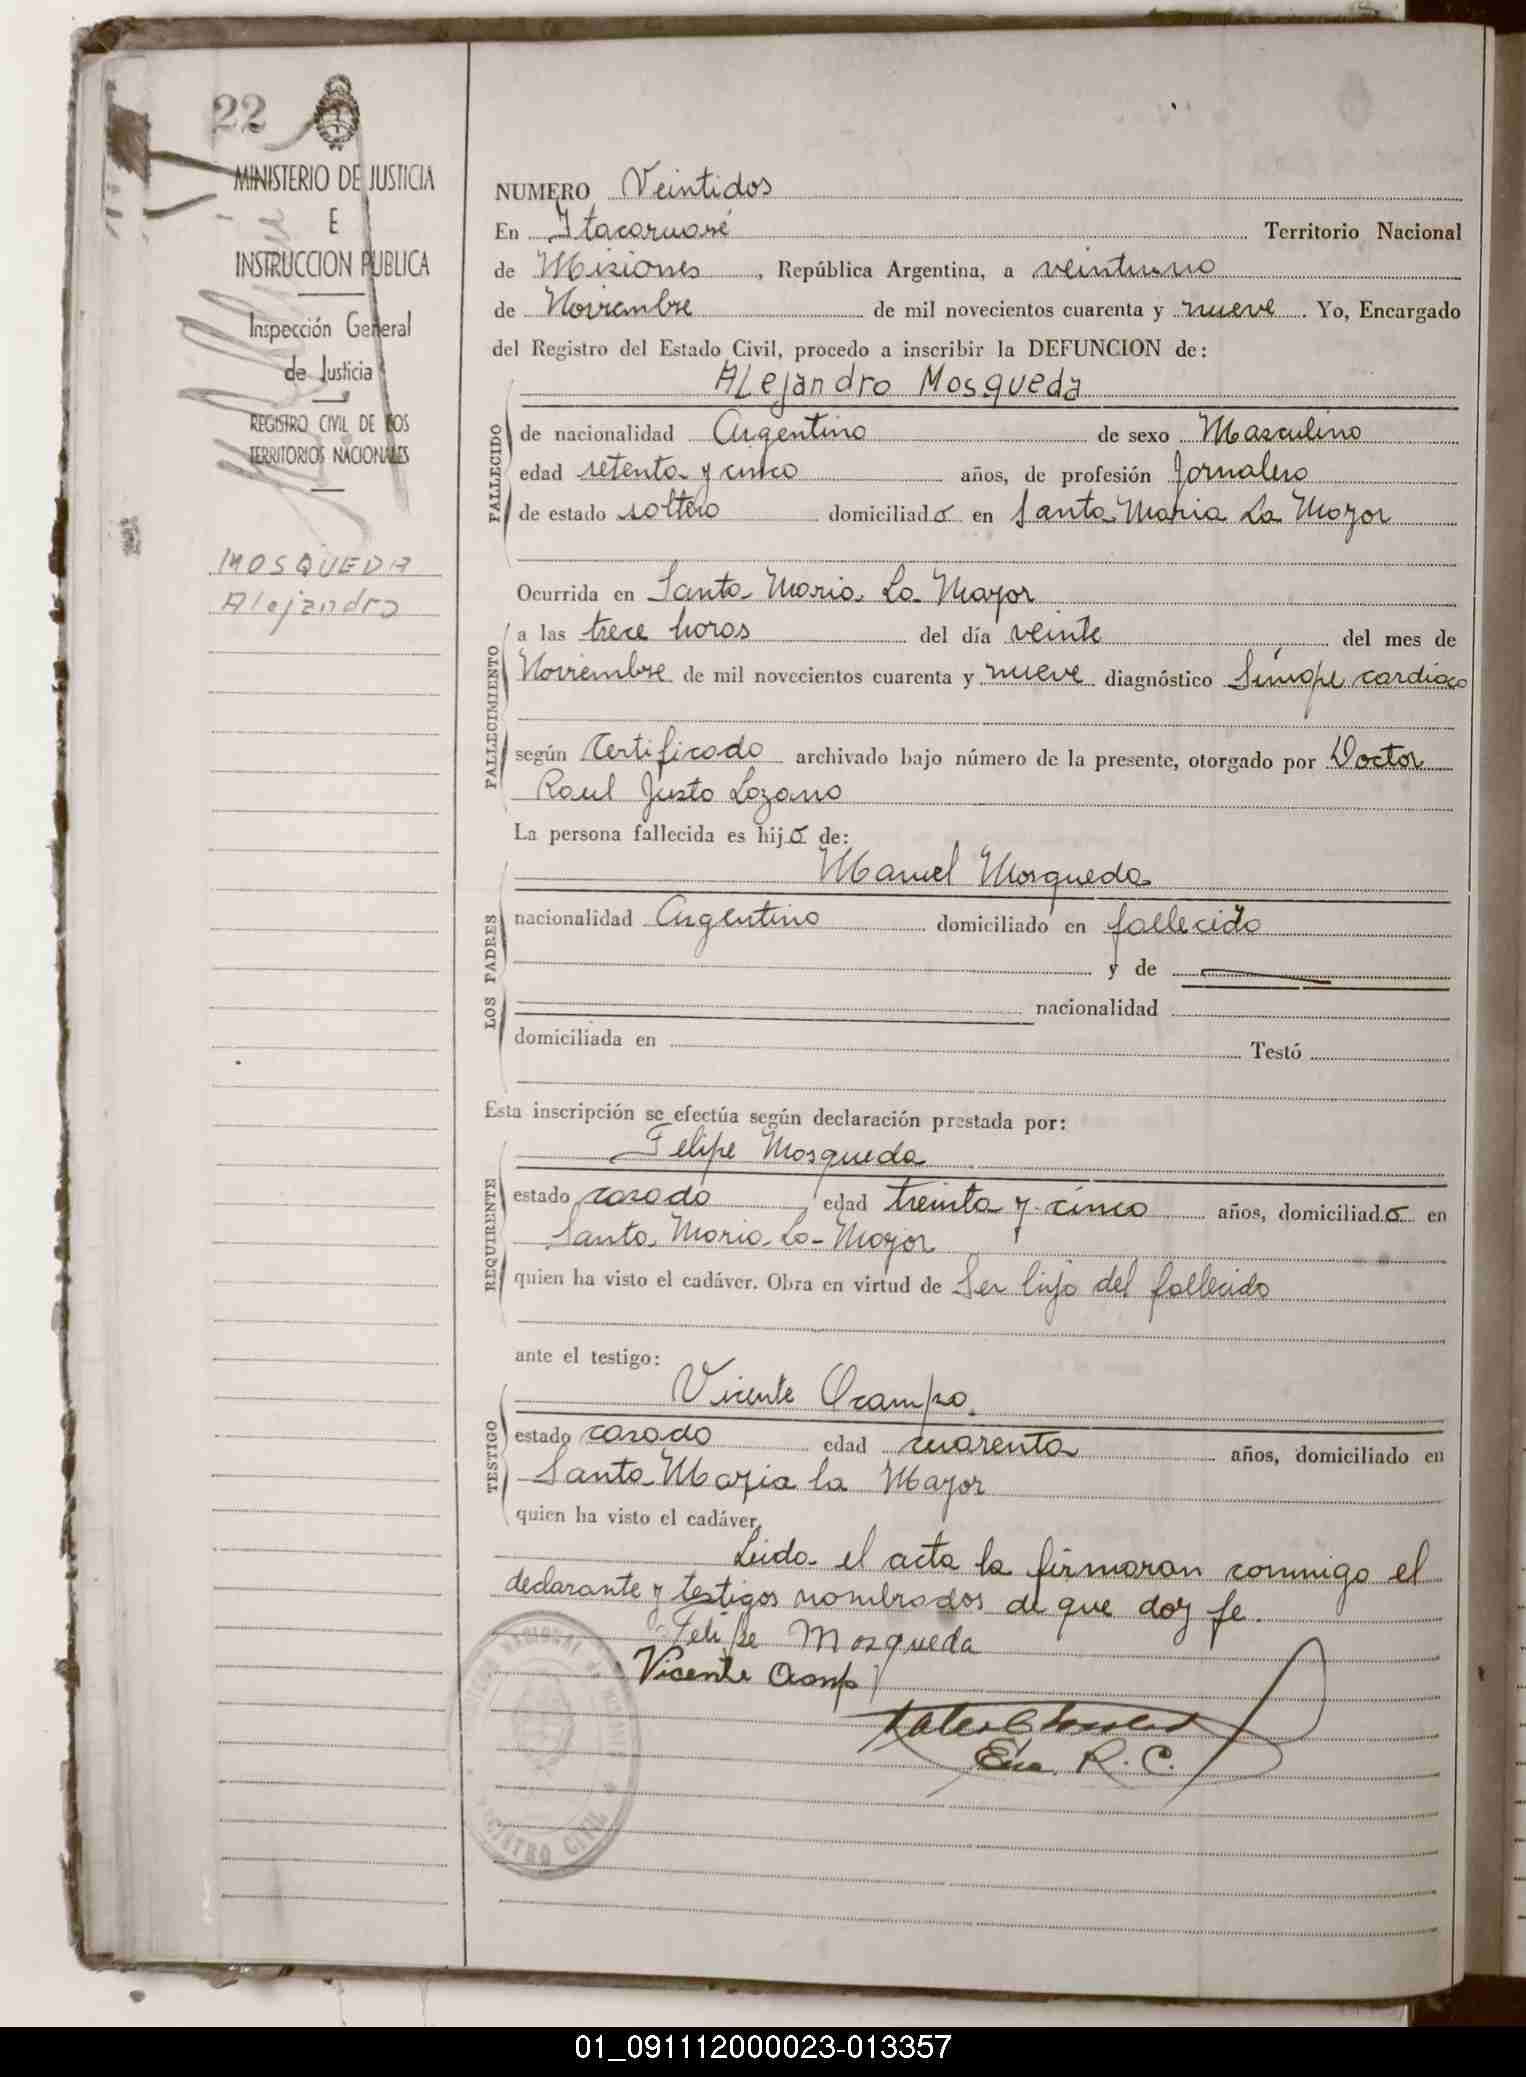 22
MINISTERIO DE JUSTICIA
E
INSTRUCCION PUBLICA
Inspección General
de Justicia
REGISTRO CIVIL DE LOS
TERRITORIOS NACIONALES
MOSQUEDA
Alejandro
NUMERO Veintidos
En Itacaruaré Territorio Nacional
de Misiones, República Argentina, a veintiuno
de Noviembre de mil novecientos cuarenta y nueve. Yo, Encargado
del Registro del Estado Civil, procedo a inscribir la DEFUNCION de:
Alejandro Mosqueda
FALLECIDO
de nacionalidad Argentino de sexo Masculino
edad setenta y cinco años, de profesión Jornalero
de estado soltero domiciliado en Santa Maria La Mayor
Ocurrida en Santa Maria La Mayor
FALLECIMIENTO
a las trece horas del día veinte del mes de
Noviembre de mil novecientos cuarenta y nueve diagnóstico Síncope cardiaco
según Certificado archivado bajo número de la presente, otorgado por Doctor
Raul Justo Lozano
La persona fallecida es hijo de:
LOS PADRES
Manuel Mosqueda
nacionalidad Argentino domiciliado en fallecido
y de
nacionalidad
domiciliada en Testó
Esta inscripción se efectúa según declaración prestada por:
REQUIRENTE
Felipe Mosqueda
estado casado, edad treinta y cinco años, domiciliado en
Santa Maria La Mayor
quien ha visto el cadáver. Obra en virtud de Ser hijo del fallecido
ante el testigo:
TESTIGO
Vicente Ocampo.
estado casado edad cuarenta años, domiciliado en
Santa Maria la Mayor
quien ha visto el cadáver.
Leida el acta la firmaran conmigo el
declarante y testigos nombrados de que doy fe.
Felipe Mosqueda
Vicente Ocamp
Enc. R. C.
REGISTRO CIVIL
01_091112000023-013357